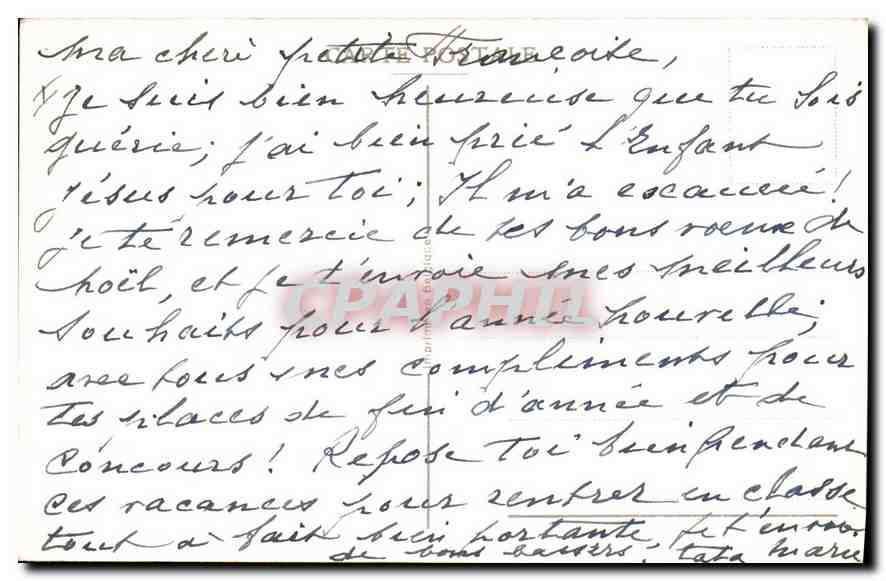 ma cheri petite Françoise,
CARTE POSTALE
Je suis bien heureuse que tu sois
guérie; j'ai bien prié L'Enfant
Jésus pour toi; Il m'a exaucée!
je te remercie de tes bons voeux de
noël, et je t'envoie mes meilleurs
souhaits pour l'année nouvelle;
avec tous mes compliments pour
tes places de fin d'année et de
concours! Repose toi bien pendant
ces vacances pour rentrer en classe
tout à fait bien portante, je t'envoie
de bons baisers. tata Marie
CPAPHIL